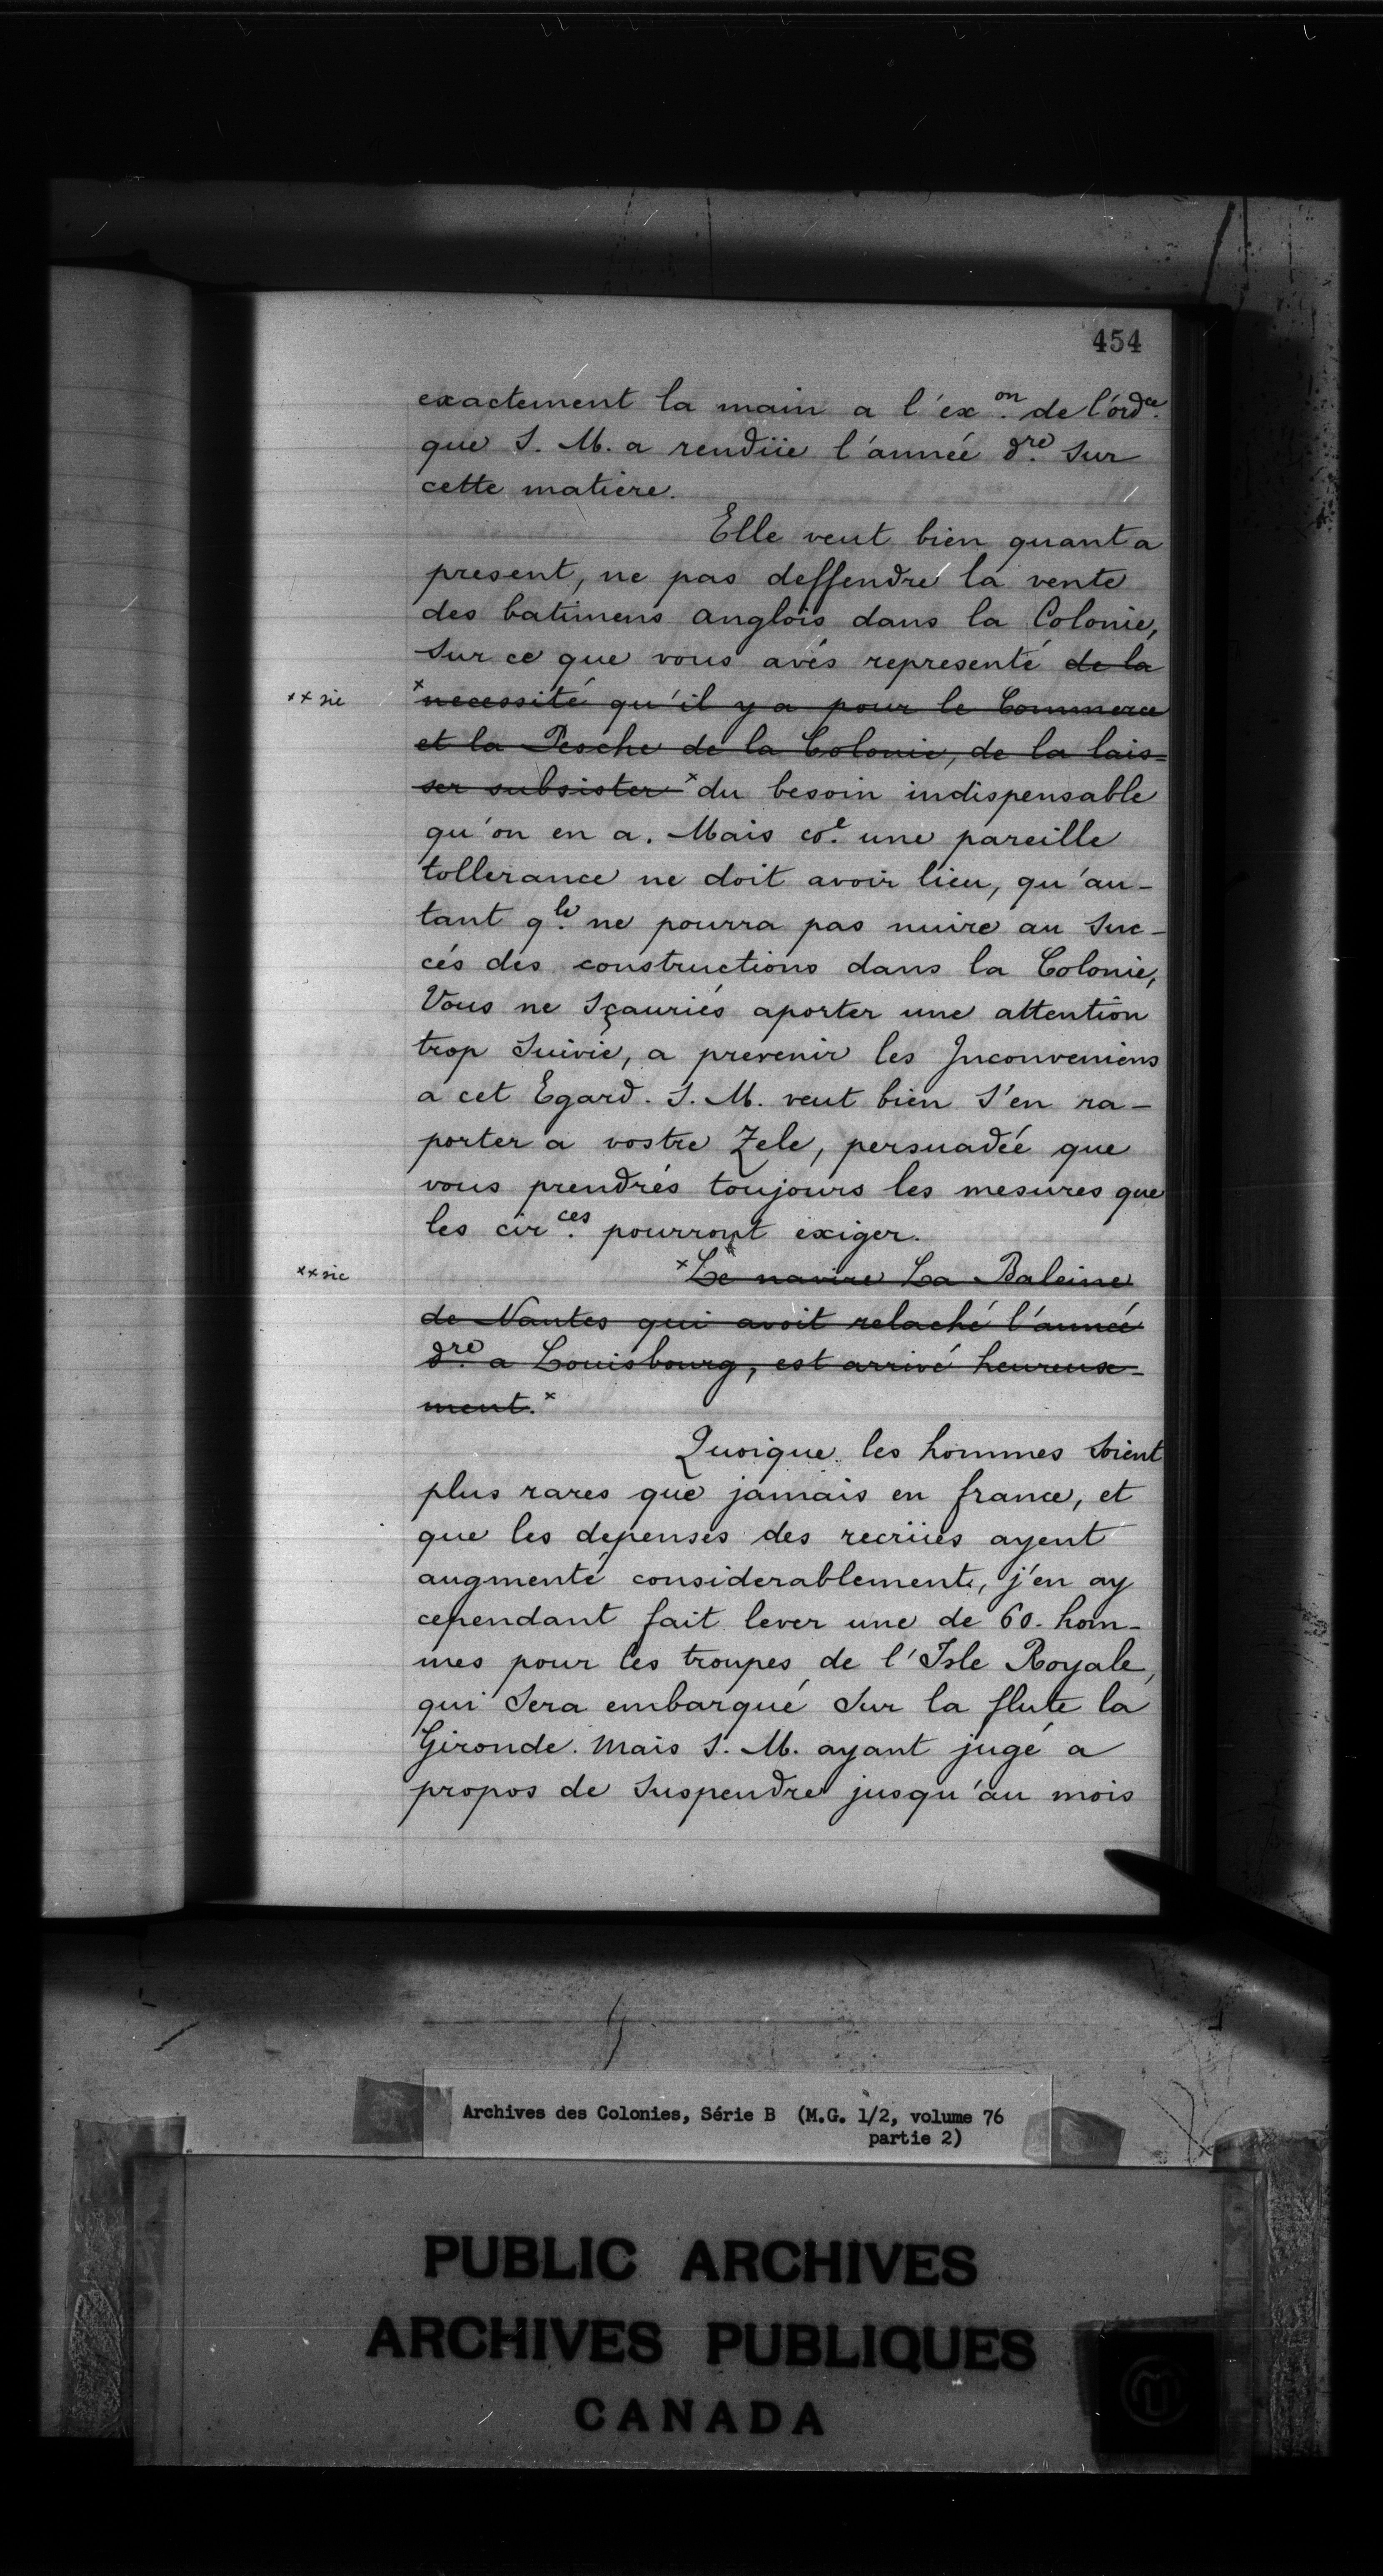 454
exactement la main a l'ex.on de l'ordce.
que S. M. a rendüe l'année dre. sur
cette matiere.
Elle veut bien quant a
present, ne pas deffendre la vente
des batimens anglois dans la Colonie,
sur ce que vous avés representé de la
xx sic
xnecessité qu'il y a pour le Commerce
et la Pesche de la Colonie, de la lais=
ser subsister x du besoin indispensable
qu'on en a. Mais coe. une pareille
tollerance ne doit avoir lieu, qu'au-
tant qle. ne pourra pas nuire au suc-
cés des constructions dans la Colonie,
Vous ne sçauriés aporter une attention
trop suivie, a prevenir les Inconveniens
a cet Egard. S. M. veut bien s'en ra-
porter a vostre Zele, persuadée que
vous prendrés toujours les mesures que
les circes. pourront exiger.
xx sic
xLe navire La Baleine
de Nantes qui avoit relaché l'année
dre. a Louisbourg, est arrivé heureuse-
ment.x
Quoique les hommes soient
plus rares que jamais en france, et
que les depenses des recrües ayent
augmenté considerablement, j'en ay
cependant fait lever une de 60. hom-
mes pour les troupes de l'Isle Royale,
qui sera embarqué sur la flute la
Gironde. Mais S. M. ayant jugé a
propos de suspendre jusqu'au mois
Archives des Colonies, Série B (M.G. 1/2, volume 76
partie 2)
PUBLIC ARCHIVES
ARCHIVES PUBLIQUES
CANADA